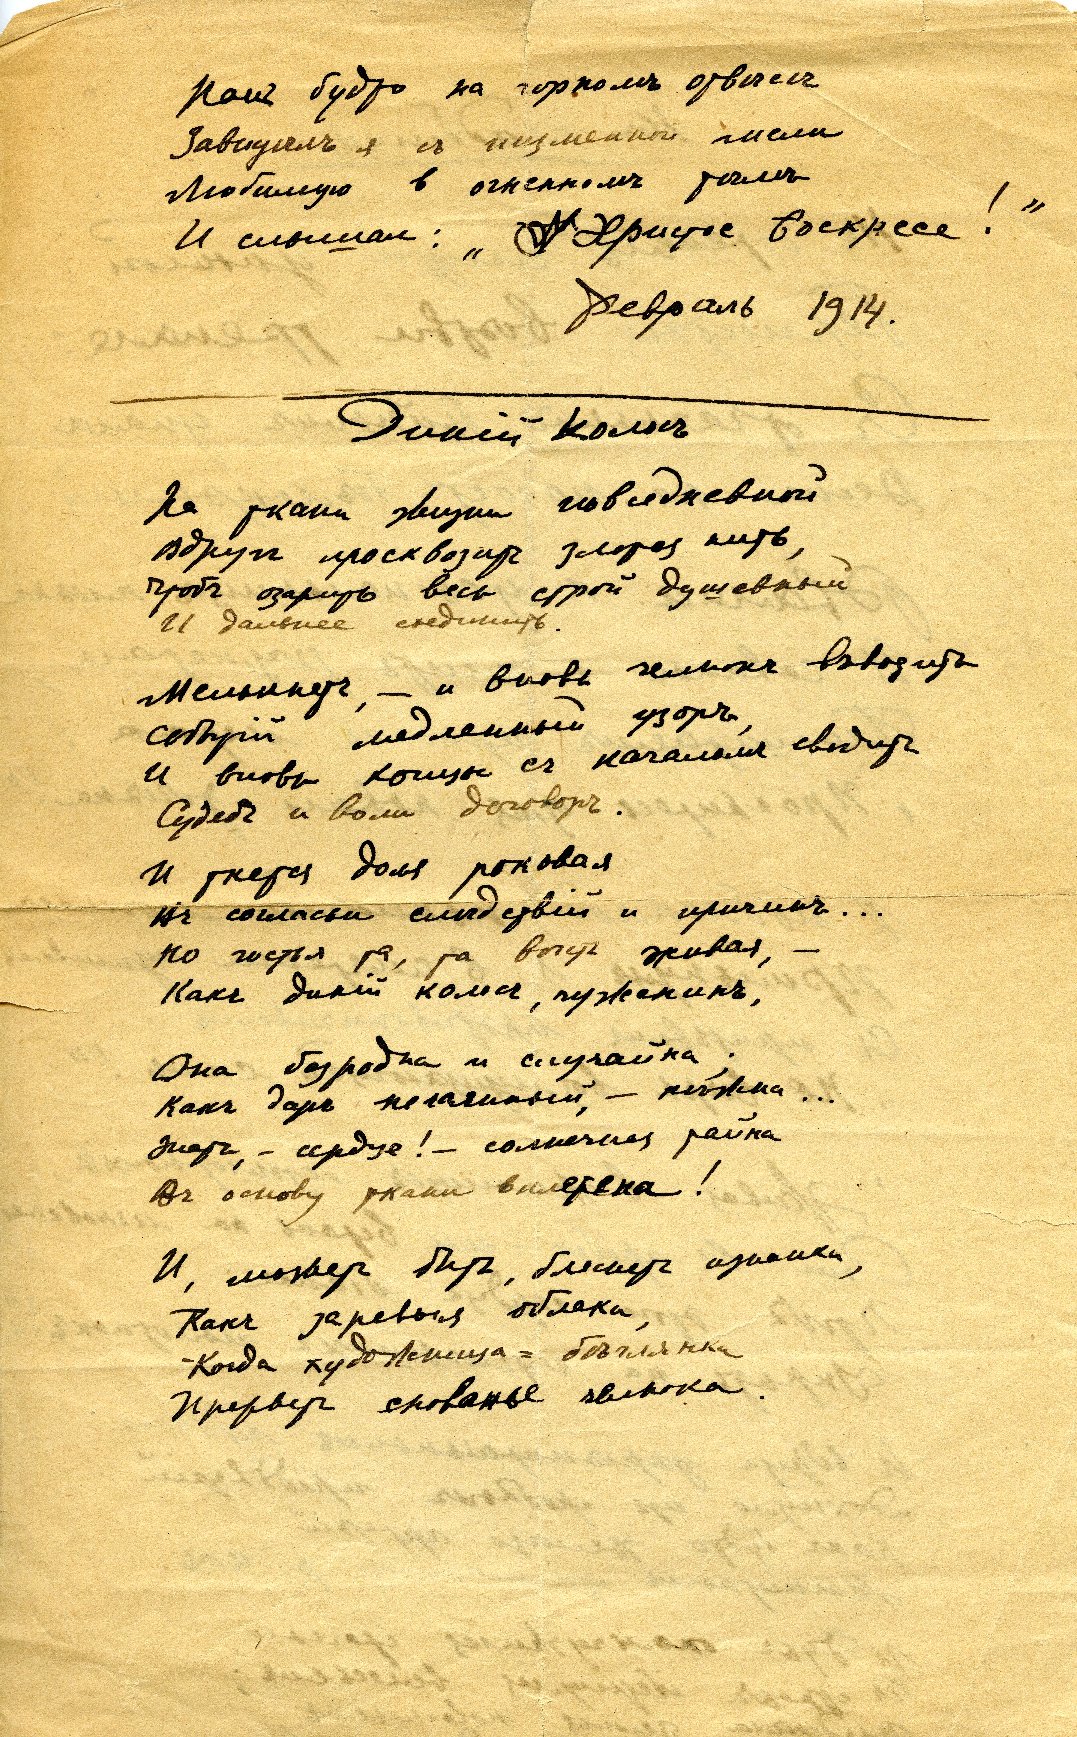 Какъ будто на горномъ отвѣсѣ
Завидѣлъ я съ низменной мели
Любимую в огненномъ тѣлѣ
И слышал: „Христос Воскресе!"
Февраль 1914.
Дикій Колосъ
На ткани жизни повседневной
Вдругъ просквозитъ златая нить,
Чтобъ озарить весь строй душевный
И дальнее соединить.
Мелькнетъ, — и вновь челнокъ выводитъ
Событій медленный узоръ,
И вновь концы съ началомъ сводитъ
Судебъ и воли договоръ.
И ткется доля роковая
Въ согласьи слѣдствій и причинъ...
Но гостья та, та вѣсть живая, —
Какъ дикій колосъ, чуженинъ,
Она безродна и случайна,
Какъ даръ нечаянный, — нѣжна...
Знать, - сердце! — солнечная тайна
Въ основу ткани вплетена!
И, можетъ быть, блеснетъ изнанка,
Какъ заревыя облака,
Когда художница = бѣглянка
Прерветъ снованье челнока.